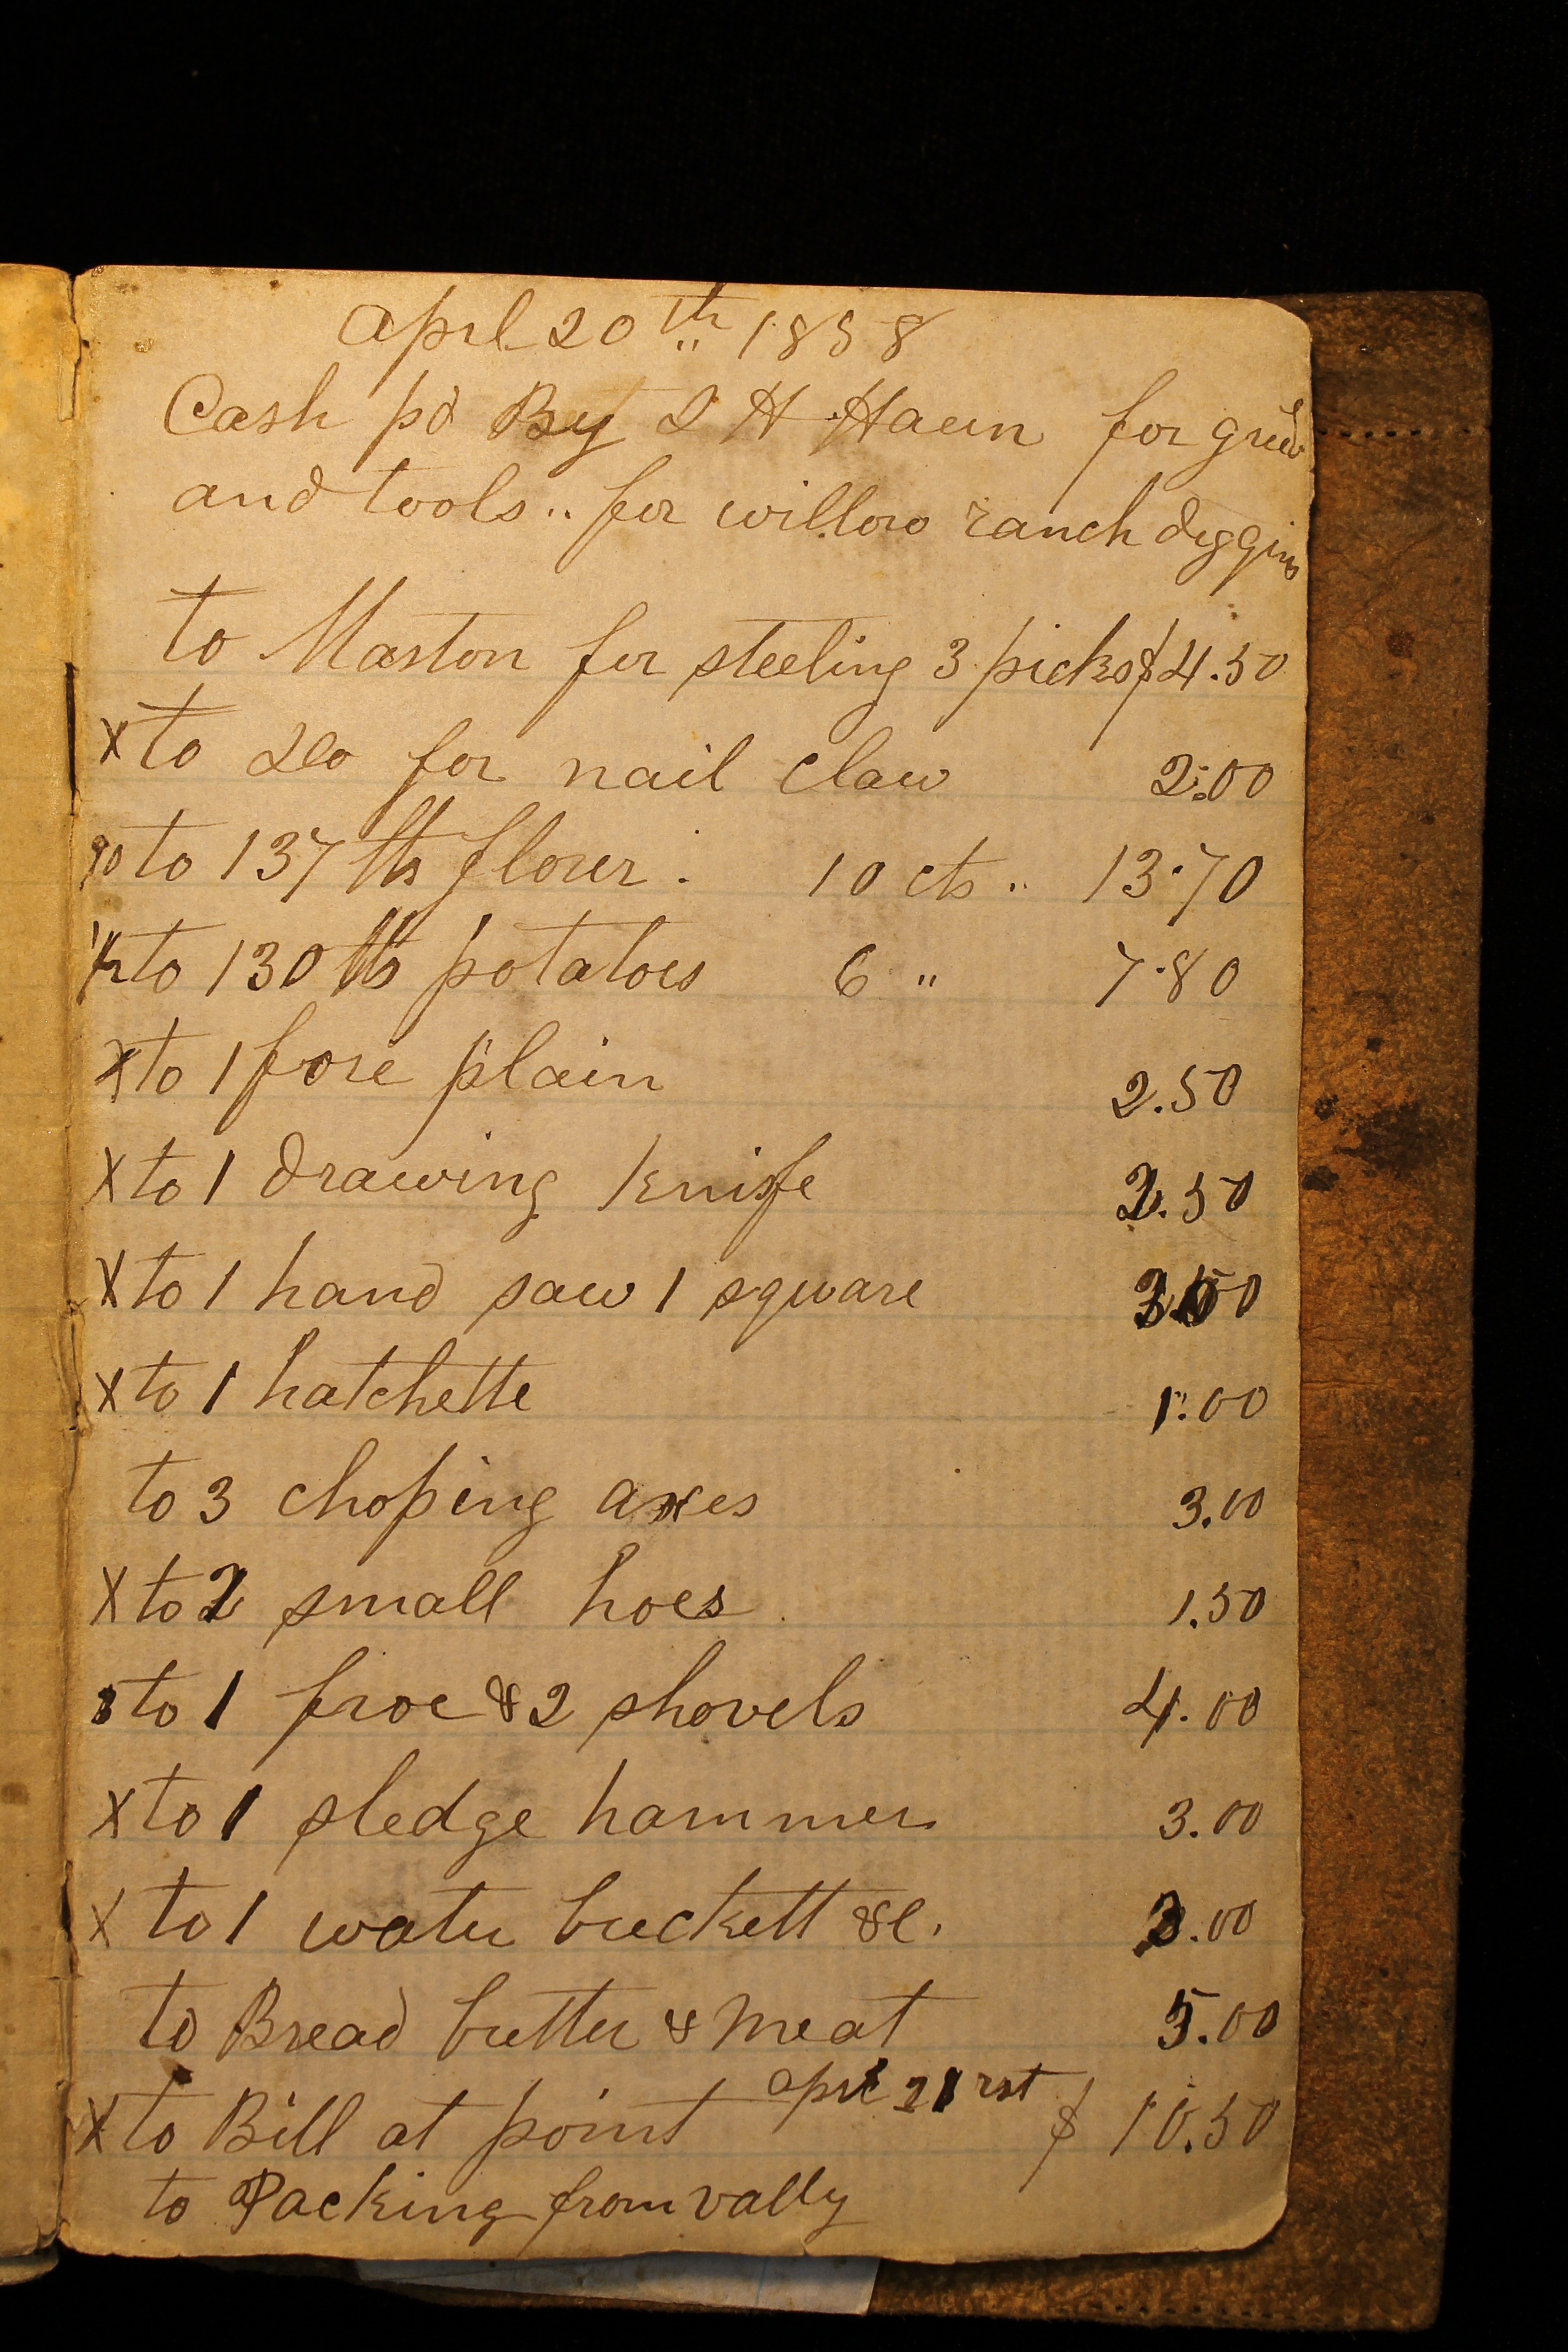 Aprl 20th 1858
Cash pd By J H Haun for grub
and tools .. for willow ranch diggins
to Maston for steeling 3 picks $4.50
x to Do for nail claw 2.00
to 137 lbs flour . 10 cts .. 13.70
to 130 lbs potatoes 6 " 7.80
x to 1 fore plain 2.50
x to 1 drawing knife 2.50
x to 1 hand saw 1 square
x to 1 hatchette 1.00
to 3 choping axes 3.00
x to 2 small hoes 1.50
to 1 froe & 2 shovels 4.00
x to 1 sledge hammer 3.00
x to 1 water buckett &c. 3.00
to Bread butter & meat 5.00
x to Bill at point aprl 21rst $ 10.50
to Packing from vally